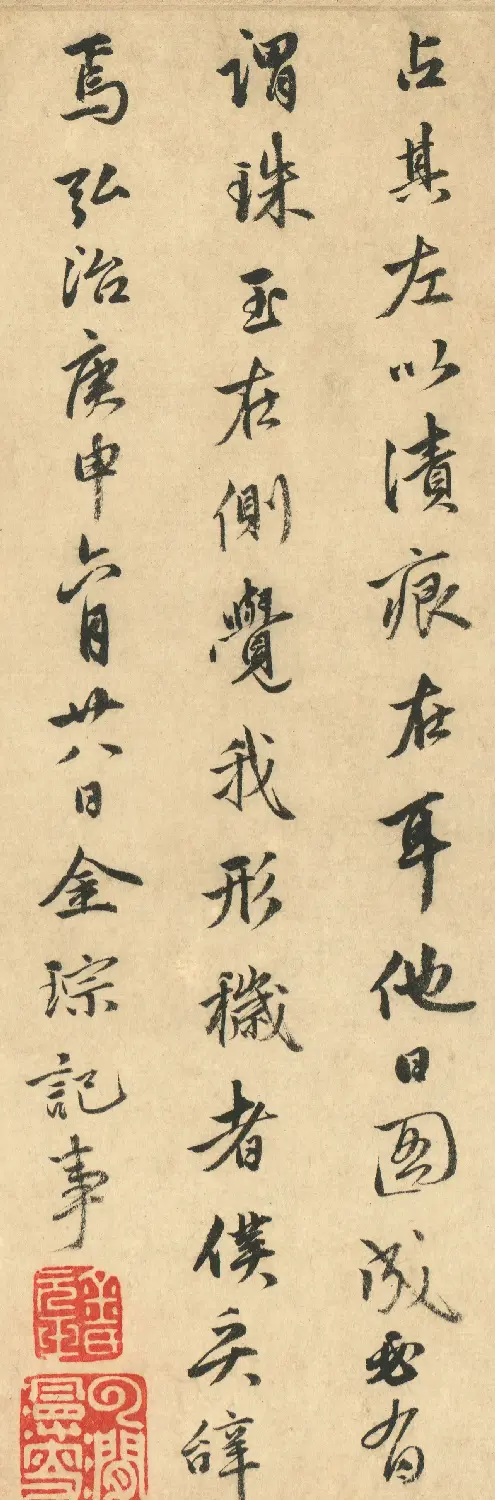 占其左以漬痕在耳他日圖成必有
謂珠玉在側覺我形穢者僕奚辭
焉弘治庚申六月廿八日金琮記事